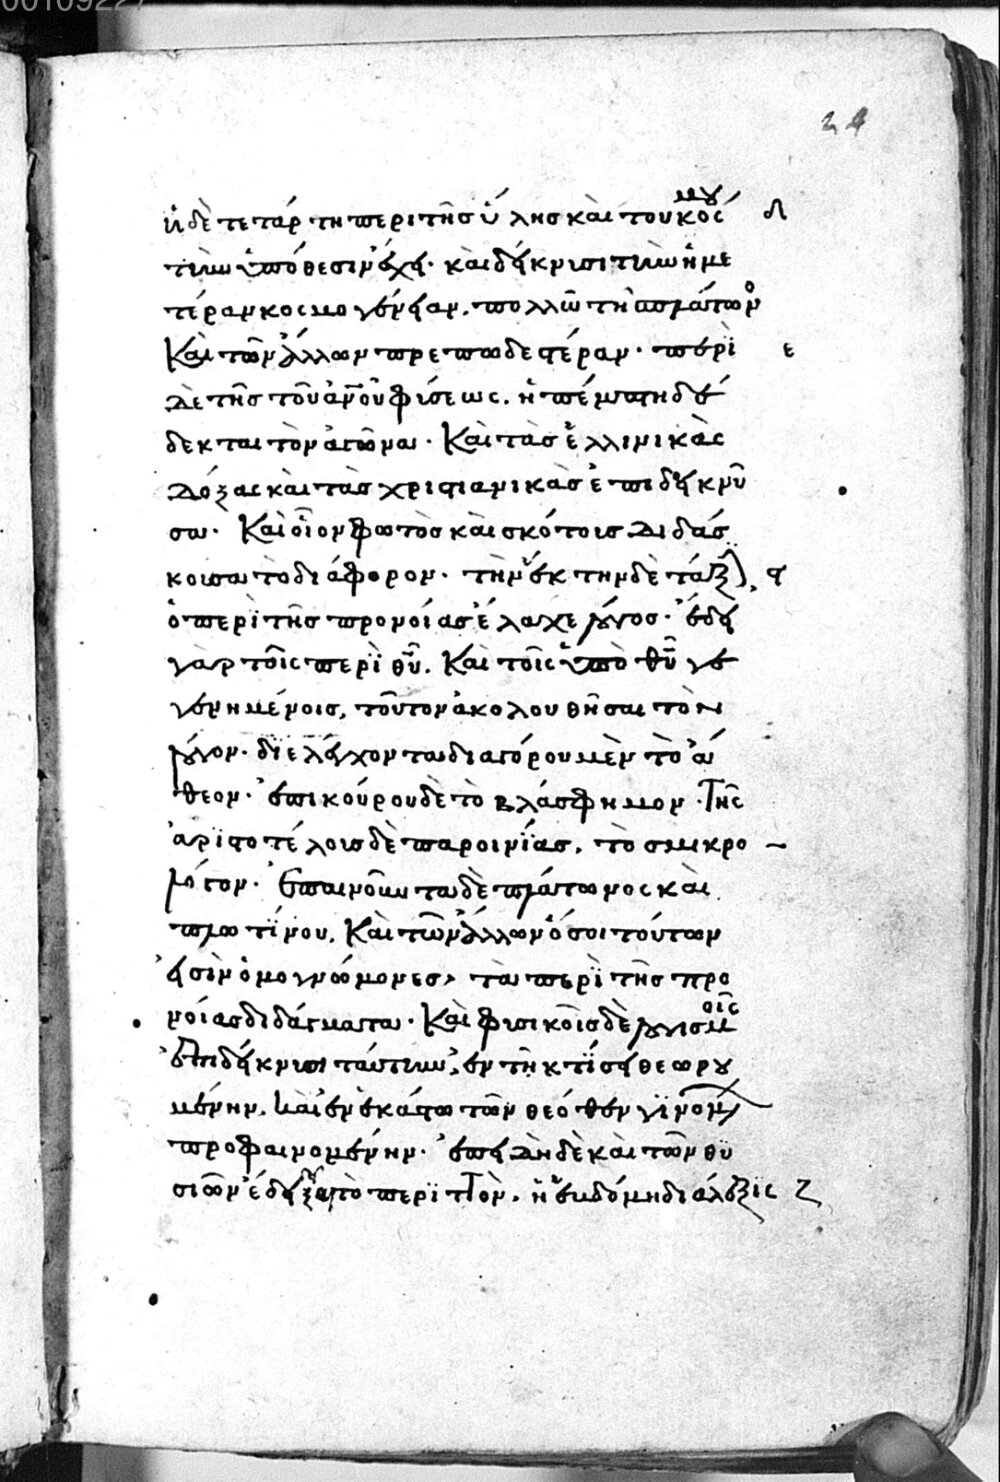 00109227
24
ἡ δὲ τετάρτη περὶ τῆς ὕλης καὶ του κόσμου δ
τὴν ὑπόθεσιν ἔχει· καὶ δείκνυσι τὴν ἡμε
τέραν κοσμογένειαν, πολλῶ τῆ πλάτων(ο)
Καὶ τῶν ἄλλων πρεπωδεστέραν· περὶ ε
δὲ τῆς τοῦ ἀνοῦ φίσεως. ἡ πέμπτη δέ
δεκται τὸν ἀγῶνα· Καὶ τὰς ἑλλινικὰς
δόξας καὶ τὰς χριστιανικὰς ἐπιδείκνῦ
σα· Καὶ οἷον φωτὸς καὶ σκότοις διδάσ
κοισα τὸ διάφορον· τὴν ἕκτην δὲ τάξ ϛ
ὁ περὶ τῆς προνοίας ἔλαχε λόγος· ἔδει
γὰρ τοῖς περὶ θῦ. Καὶ τοῖς ὑπὸ θῦ γε
γενημένοις, τοῦτον ἀκολουθῆσαι τὸν
λόγον· διελέγχοντα διαγόρου μὲν τὸ ἄ
θεον· ἐπικούρου δὲ τὸ βλάσφημον· Τῆς
ἀριστοτέλοις δὲ παροινίας, τὸ σμικρο
λόγον· Ἐπαινοῦντα δὲ πλάτωνος καὶ
πλωτίνου, Καὶ τῶν ἄλλων ὅσοι τούτων
εἰσὶν ὁμογνώμονες, τὰ περὶ τῆς προ
νοίας διδάγματα· Καὶ φισικοῖς δὲ λογισμοῖς
ἐπιδείκνυσι ταύτην, ἐν τῆ κτίσει θεωρου
μένην, καὶ ἐν ἑκάστω τῶν θεόθεν γινομ
προφαινομένην· ἐπειδὴ δὲ καὶ τῶν θυ
σιῶν ἔδειξαι τὸ περιττὸν, ἡ ἑυδόμη διάλεξις ζ